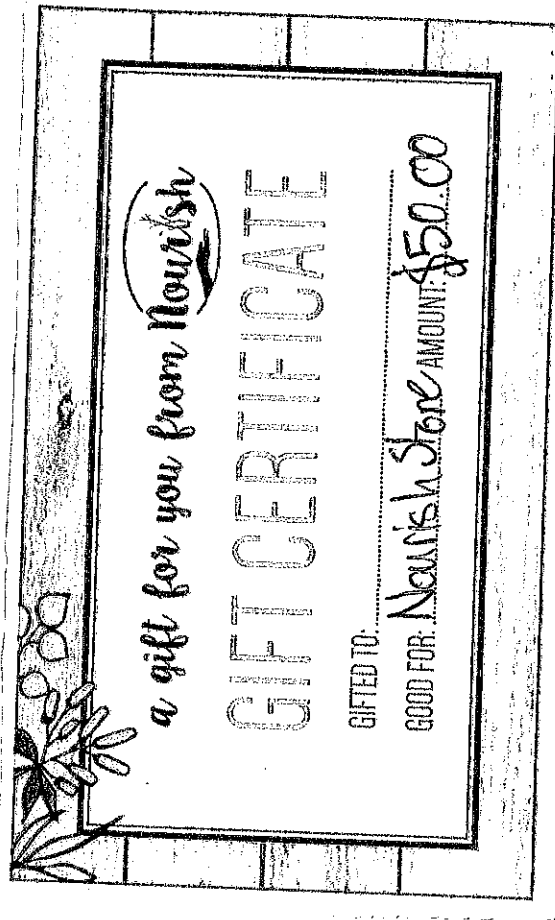 a gift for you from Nourish
GIFT CERTIFICATE
GIFTED TO:
GOOD FOR: Nourish Store AMOUNT: $50.00